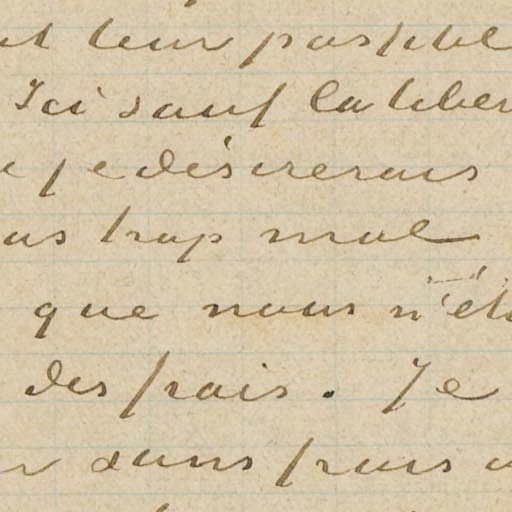 leur possible
Ici sauf la liber
je désirerais
pas trop mal
que nous n'ét
des frais. Je
sans frais